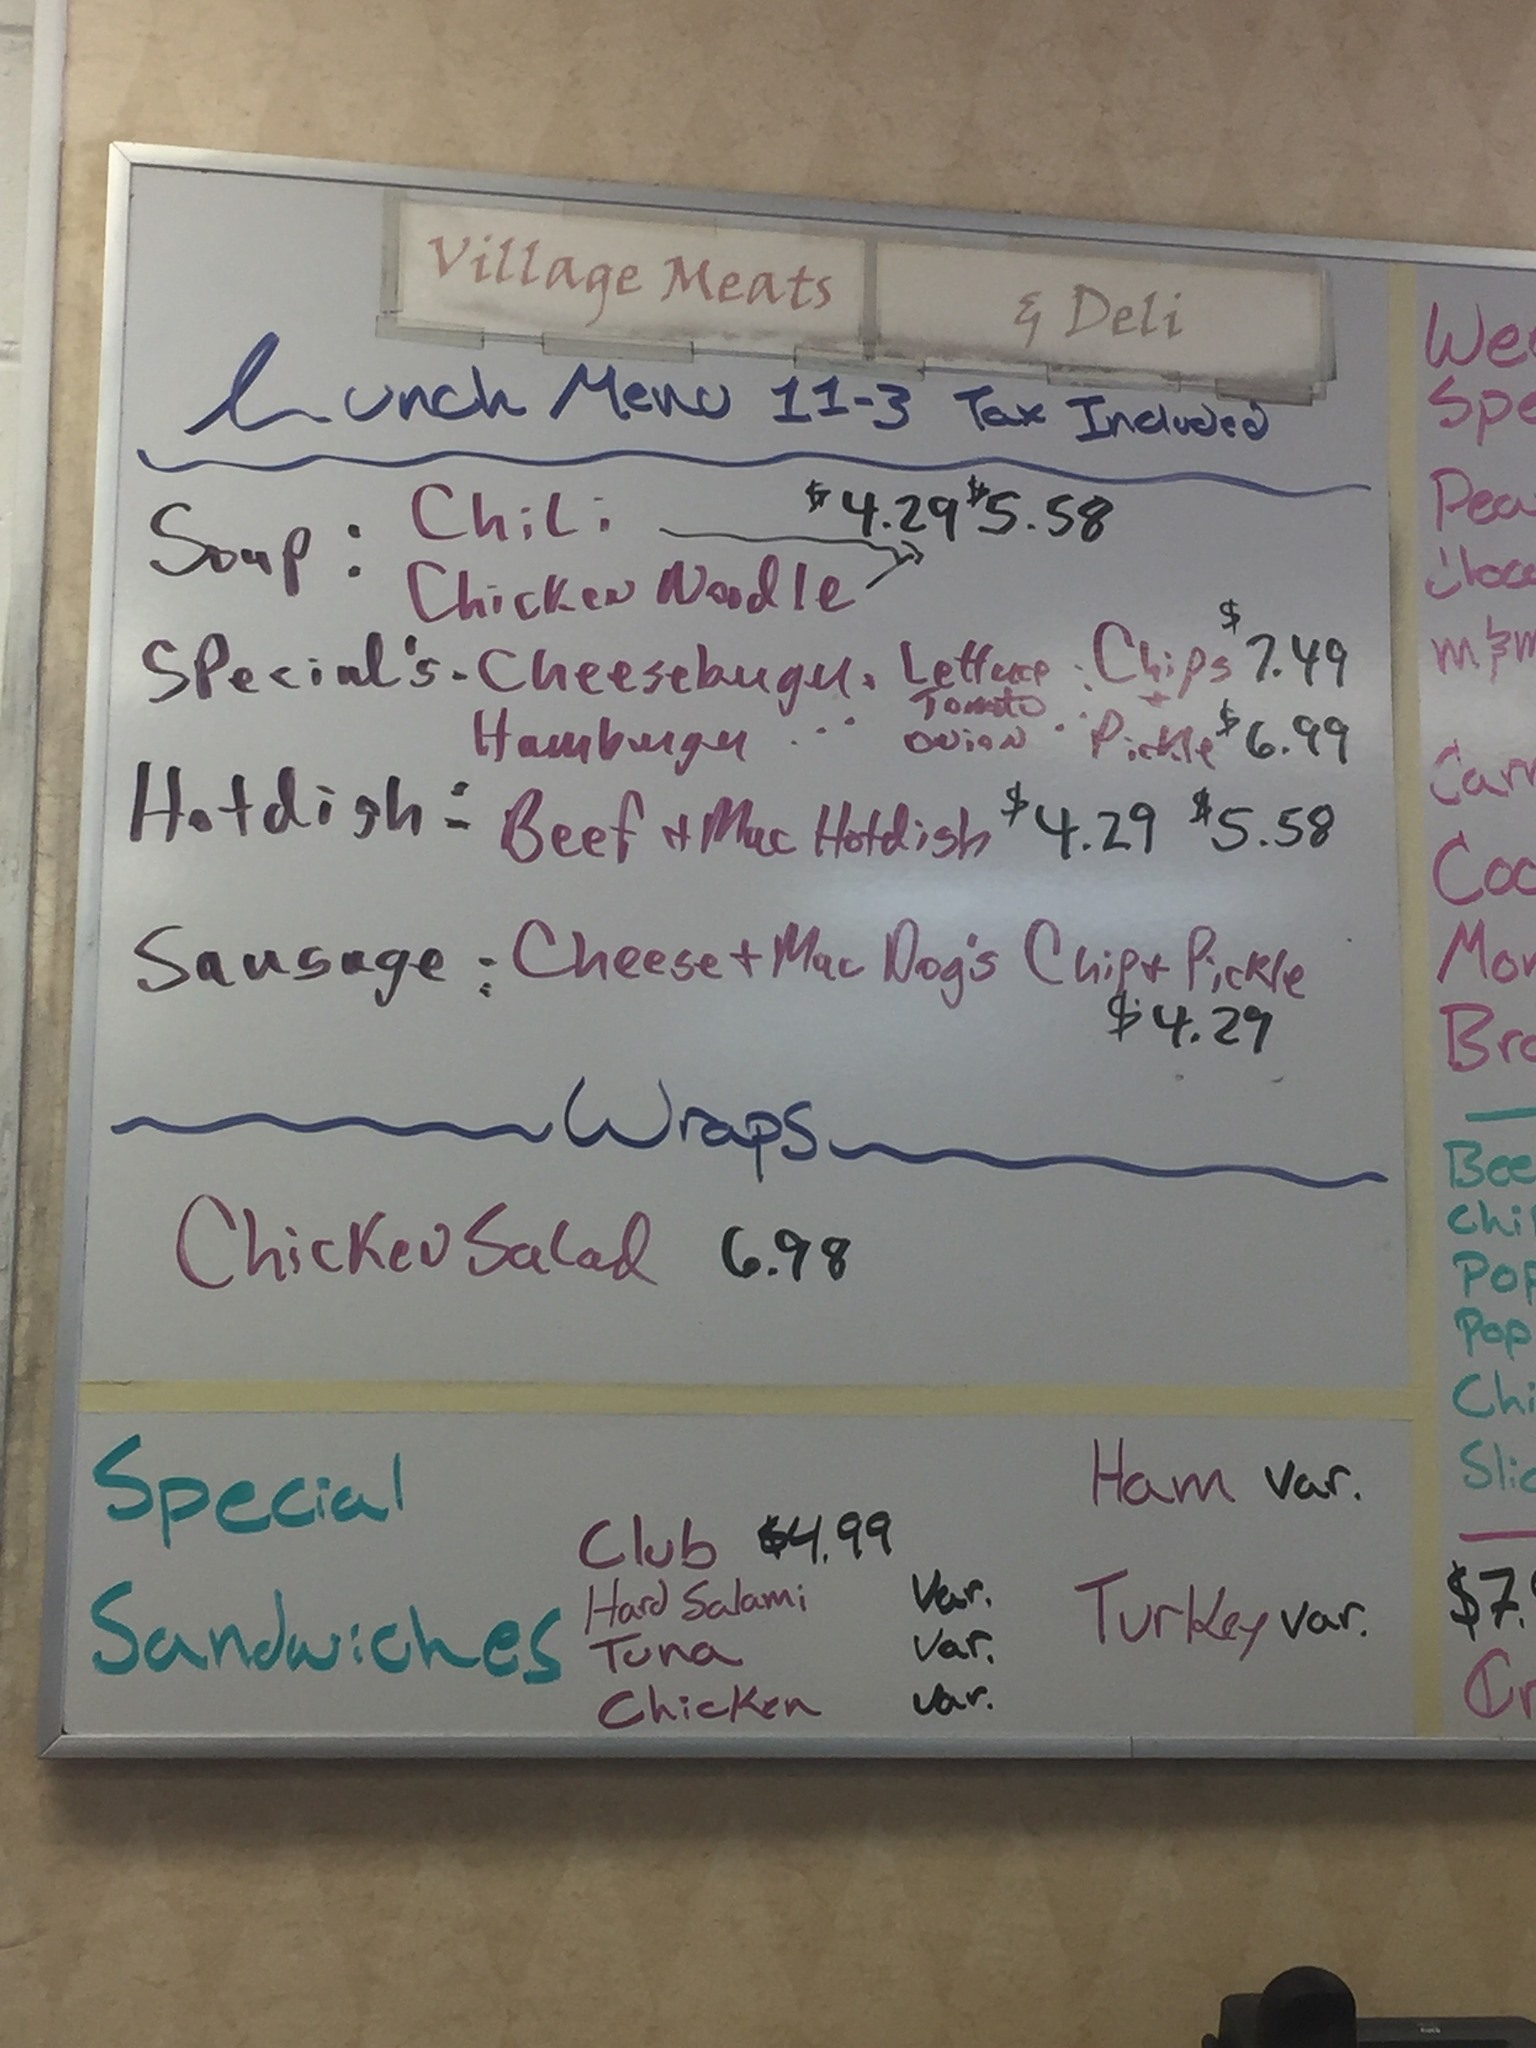 Village Meats & Deli
Lunch Menu 11-3 Tax Included
Soup: Chili $4.29 $5.58
Chicken Noodle
Special's. Cheeseburger. Lettuce Chips $7.49
Tomato +
Hamburger onion Pickle $6.99
Hotdish: Beef + Mac Hotdish $4.29 $5.58
Sausage: Cheese + Mac Dog's Chip + Pickle
$4.29
Wraps
Chicken Salad 6.98
Special
Sandwiches
Club $4.99
Hard Salami Var.
Tuna Var.
Chicken var.
Ham var.
Turkey var.